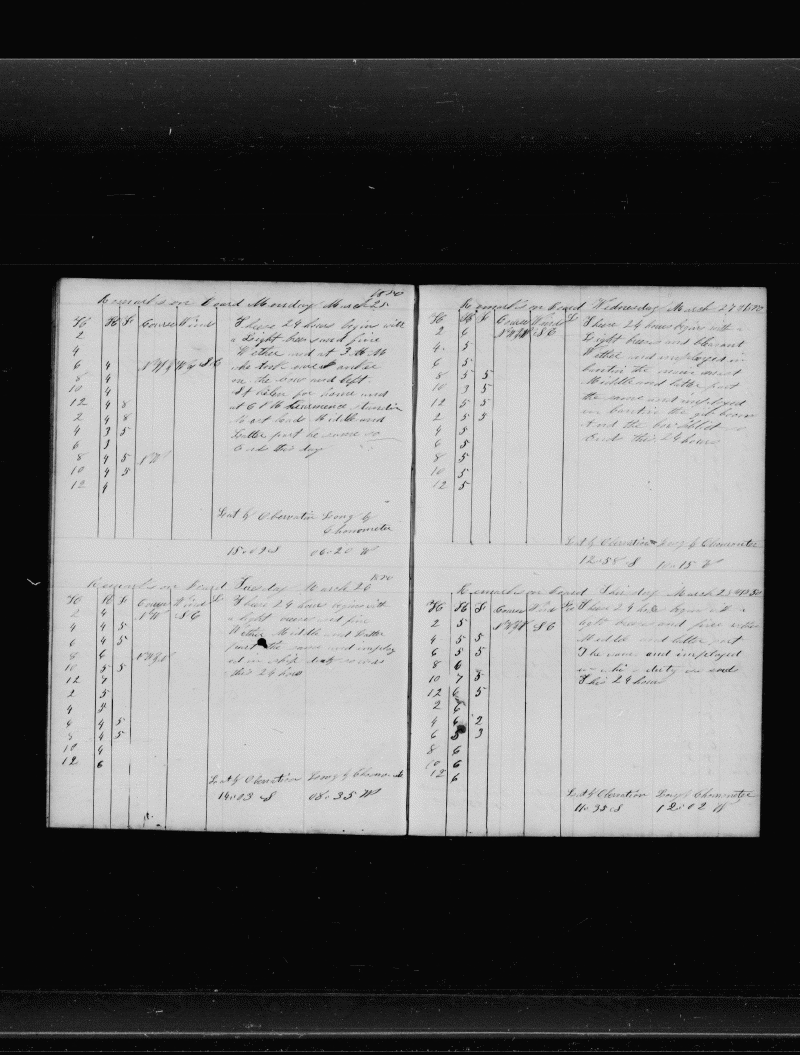 Remarks on Board Monday March 25 1850
H K F Course Winds
2
4
6 4
8 4
10 4
12 4 8
2 4 8
4 3 5
6 3
8 4 5 NW
10 4 5
12 4
These 24 hours begins with
a Light breeze and fine
Wether and at 3 P M
we took over anchor
on the bow and left
St Helena for home and
at 6 P M
Latter part the same so
Ends this day
Lat by Obervation Long by
Chonometer
15-09 S 06-20 W
Remarks on Board Tuesday March 26 1850
H K F Course Winds
2 4 NW SE
4 4 5
6 4 5
8 6
10 5 5
12 7
2 5
4
4 4 5
8 4 5
10 4
12 6
These 24 hours begins with
a light and fine
Wether Middle and Latter
part the same and employ
ed in ship duty so ends
this 24 hours
Lat by Obervation Long by
14-03 S 08-35 W
Remarks on Board Wednesday March 27 1850
H K F Course Winds
2 6 SE
4 5
6 5
8 5 5
10 3 5
12 5 5
2 5 5
4 5
6 5
8 5
10 5
12 5
These 24 hours begins with a
Light breeze and pleasant
Wether and employed in
Middle and latter part
the same and imployed
Ends this 24 hours
Lat by Obervation Long by Chonometer
12-58 S 10-15 W
Remarks on Board
H K F Course Winds
2 5 SE
4 5 5
6 5 5
8 6
10 7 8
12 6 5
2 6
4 6 2
6 5 3
8 6
10 6
12 6
These 24 begins with a
light breeze and fine
Middle and latter part
The same and imployed
duty so ends
This 24 hours
Lat by Obervation Long by Chonometer
11-33 S 12-02 W